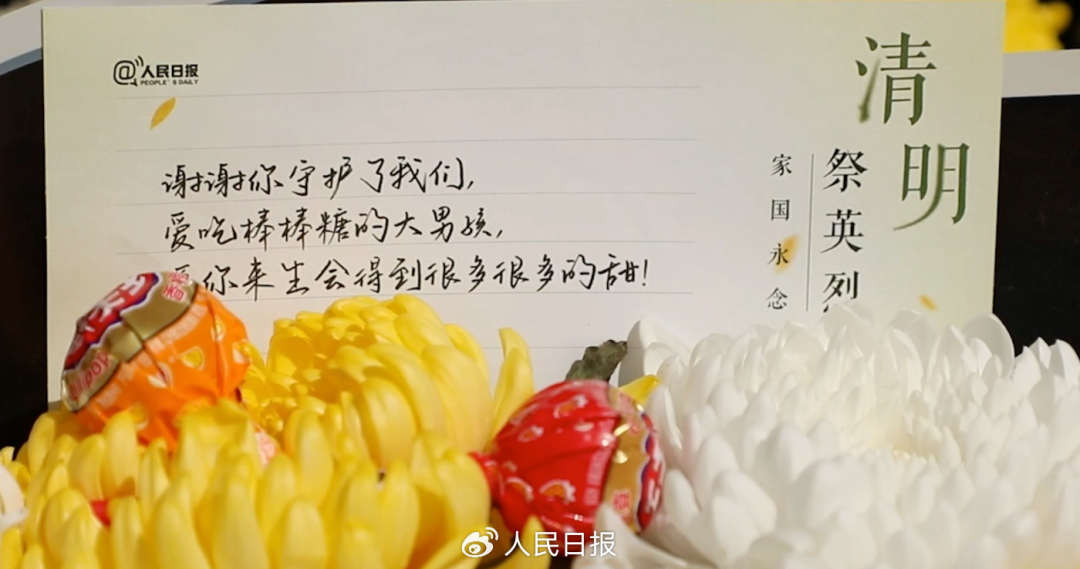 @人民日报
PEOPLE'S DAILY
谢谢你守护了我们,
爱吃棒棒糖的大男孩,
你来生会得到很多很多的甜!
清明
祭英烈
家国永念
人民日报